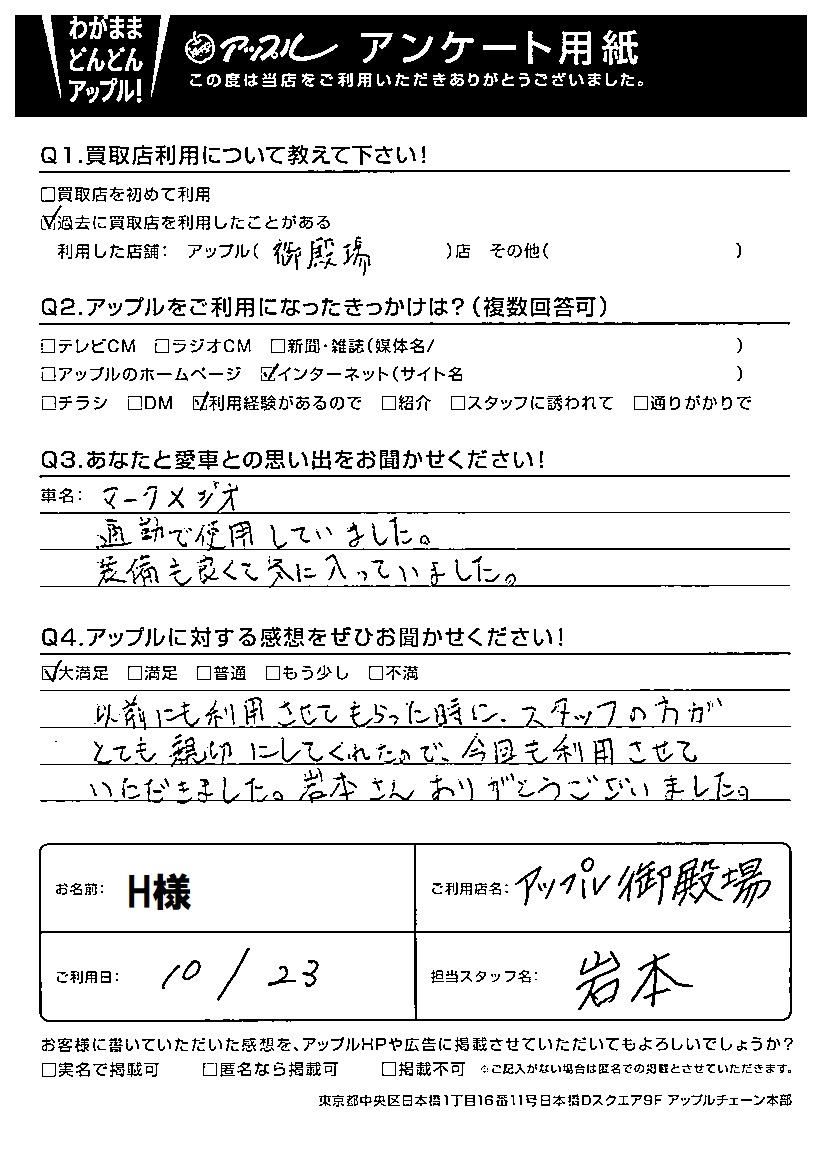 わがまま
どんどん
アップル!
アップル アンケート用紙
この度は当店をご利用いただきありがとうございました。
Q1.買取店利用について教えて下さい!
□買取店を初めて利用
☑過去に買取店を利用したことがある
利用した店舗: アップル( 御殿場 )店 その他( )
Q2.アップルをご利用になったきっかけは?(複数回答可)
□テレビCM □ラジオCM □新聞・雑誌(媒体名/ )
□アップルのホームページ ☑インターネット(サイト名 )
□チラシ □DM ☑利用経験があるので □紹介 □スタッフに誘われて □通りがかりで
Q3.あなたと愛車との思い出をお聞かせください!
車名: マークXジオ
通勤で使用していました。
装備も良くて気に入っていました。
Q4.アップルに対する感想をぜひお聞かせください!
☑大満足 □満足 □普通 □もう少し □不満
以前にも利用させてもらった時に、スタッフの方が
とても親切にしてくれたので、今回も利用させて
いただきました。岩本さんありがとうございました。
お名前: H様
ご利用店名: アップル御殿場
ご利用日: 10/23
担当スタッフ名: 岩本
お客様に書いていただいた感想を、アップルHPや広告に掲載させていただいてもよろしいでしょうか?
□実名で掲載可 □匿名なら掲載可 □掲載不可 ※ご記入がない場合は匿名での掲載とさせていただきます。
東京都中央区日本橋1丁目16番11号日本橋Dスクエア9F アップルチェーン本部